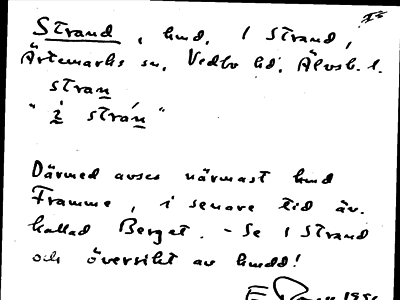 Strand, hmd, 1 Strand,
Ärtemarks sn, Vedbo hd, Älvsb. l.
stran
"i strán"
Därmed avses närmast hmd
Framme, i senare tid äv.
kallad Berget. - Se 1 Strand
och översikt av hmdd!